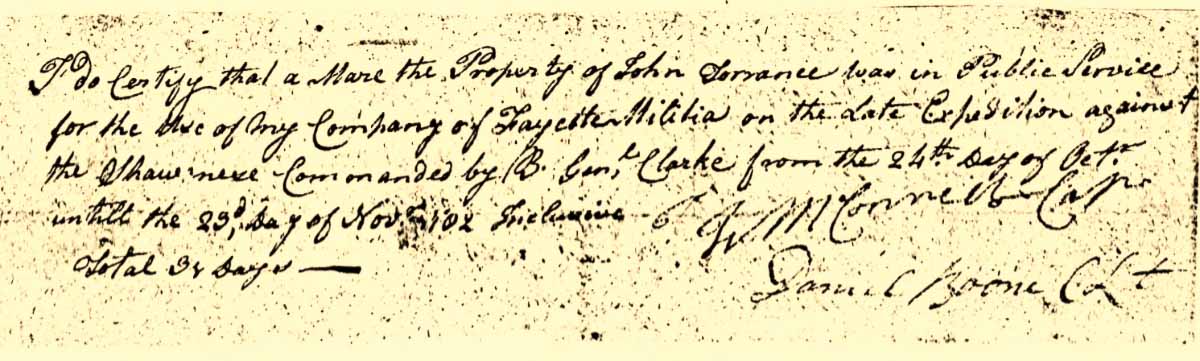 I do Certify that a Mare the Property of John Torrance was in Public Service
for the Use of my Company of Fayette Militia on the Late Expedition against
the Shawnese Commanded by B. Genl Clarke from the 24th Day of Octr
untill the 23d Day of Novr 1782 Inclusive
Wm McConnell Capn
Total 31 Days
Daniel Boone C Lt